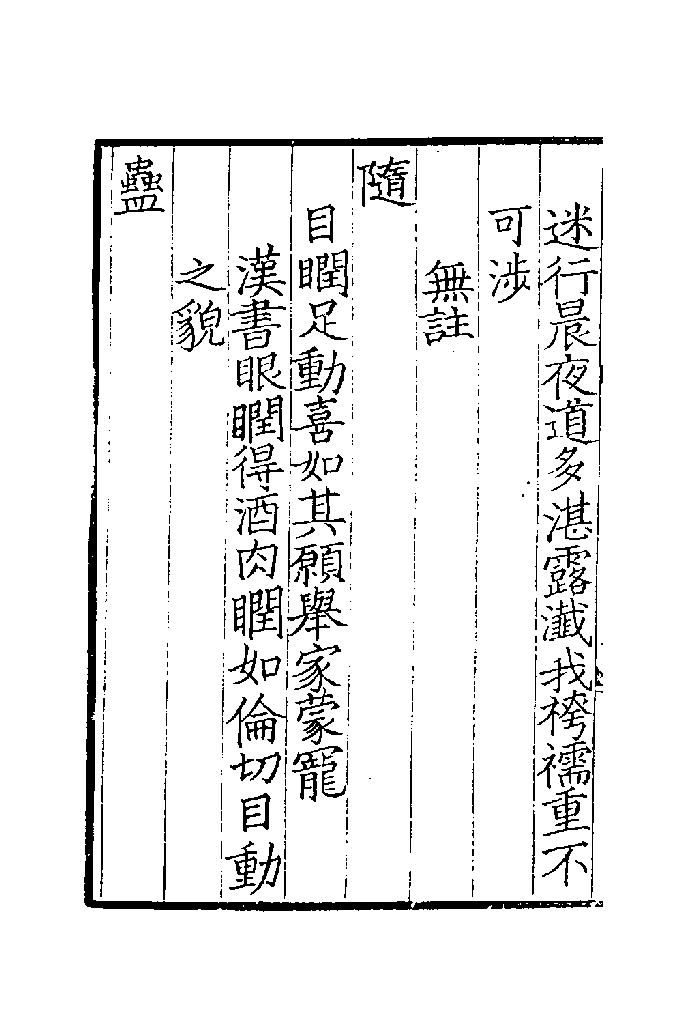 迷行晨夜道多湛露瀸我袴襦重不
可渉
無註
隨
目瞤足動喜如其願舉家蒙寵
漢書眼瞤得酒肉瞤如倫切目動
之貌
蠱